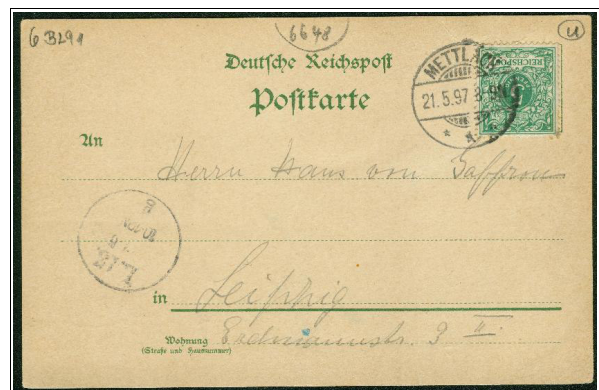 6 B291
6648
U
Deutsche Reichspost
Postkarte
METTLACH
21.5.97 8-9N
REICHSPOST
5
An
Herrn Hans von Saffron
in Leipzig
Wohnung
(Straße und Hausnummer)
Erdmannstr. 3 II.